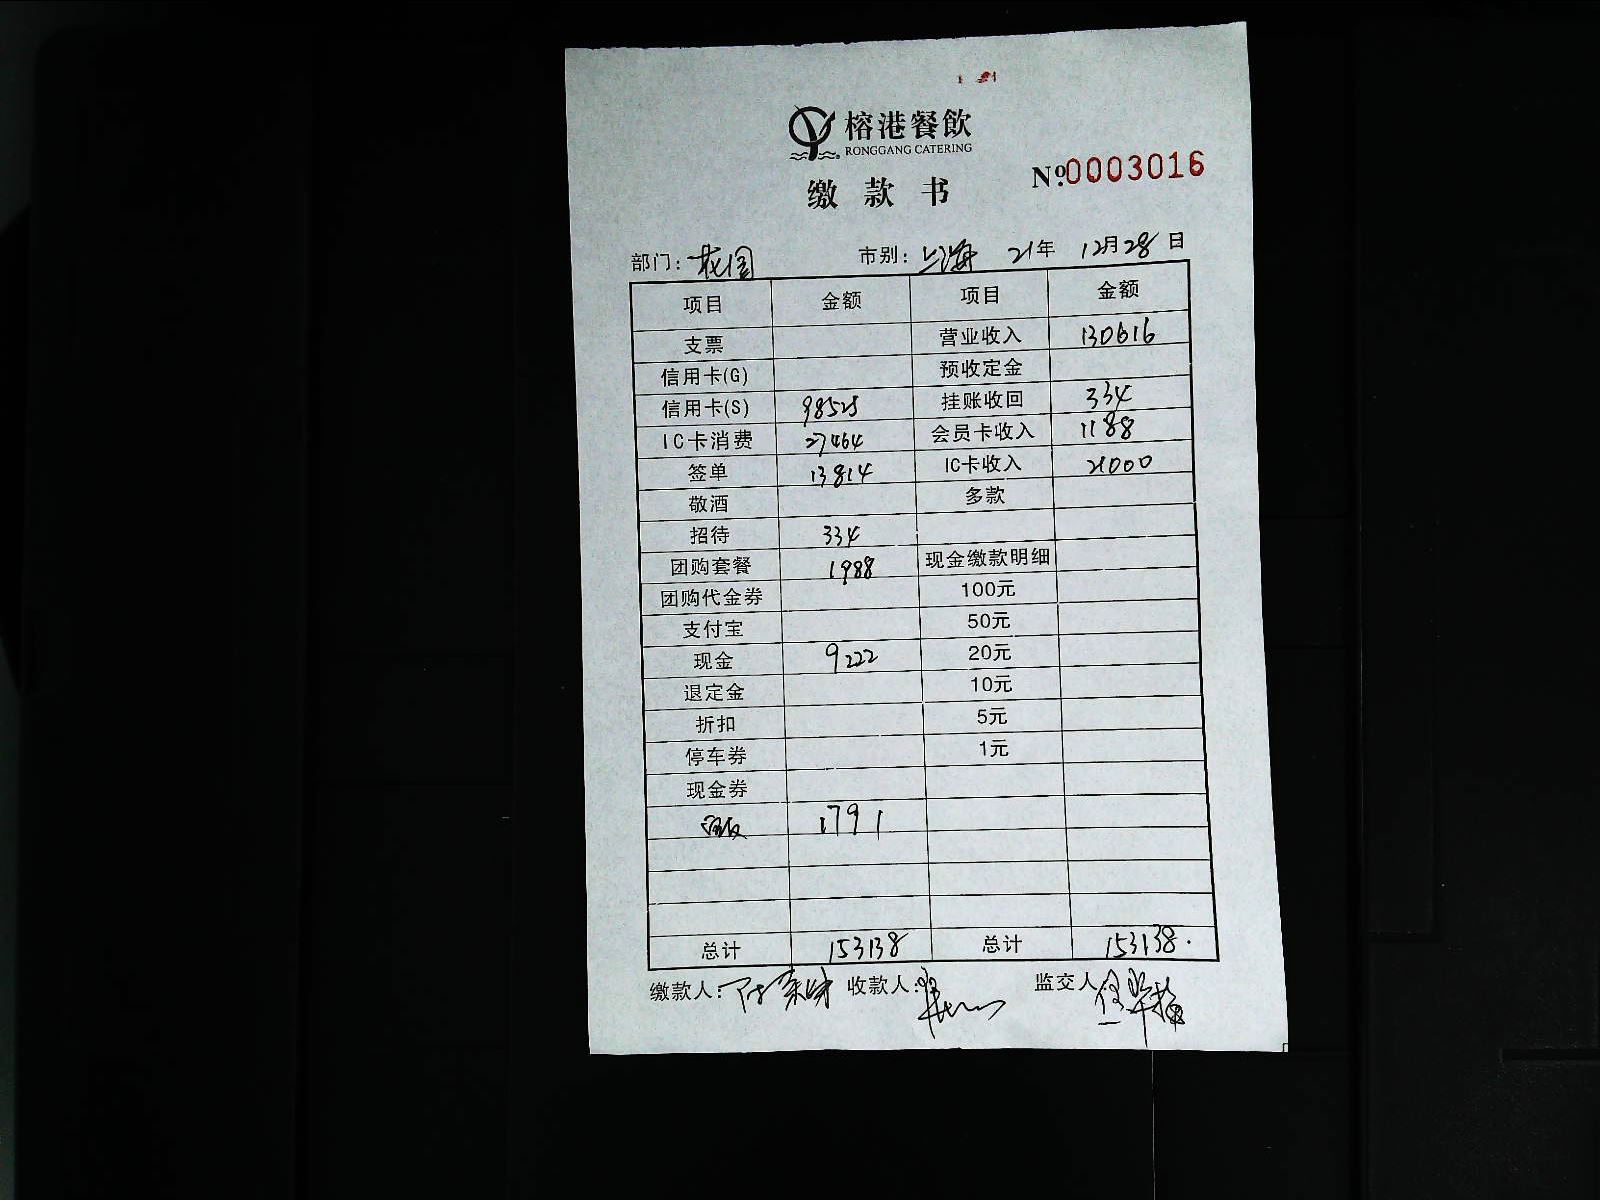 榕港餐飲
RONGGANG CATERING
缴款书
Nº:0003016
部门:花园 市别:上海 21年 12月28日
项目 金额 项目 金额
支票 营业收入 130616
信用卡(G) 预收定金
信用卡(S) 98525 挂账收回 334
IC卡消费 27464 会员卡收入 1188
签单 13814 IC卡收入 21000
敬酒 多款
招待 334
团购套餐 1988 现金缴款明细
团购代金券 100元
支付宝 50元
现金 9222 20元
退定金 10元
折扣 5元
停车券 1元
现金券
1791
总计 153138 总计 153138.
缴款人: 收款人: 监交人